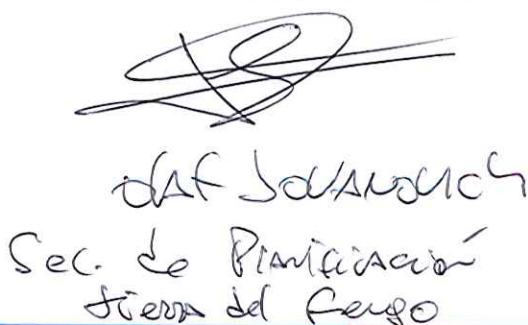 Olaf Jovanovich
Sec. de Planificación
Tierra del Fuego